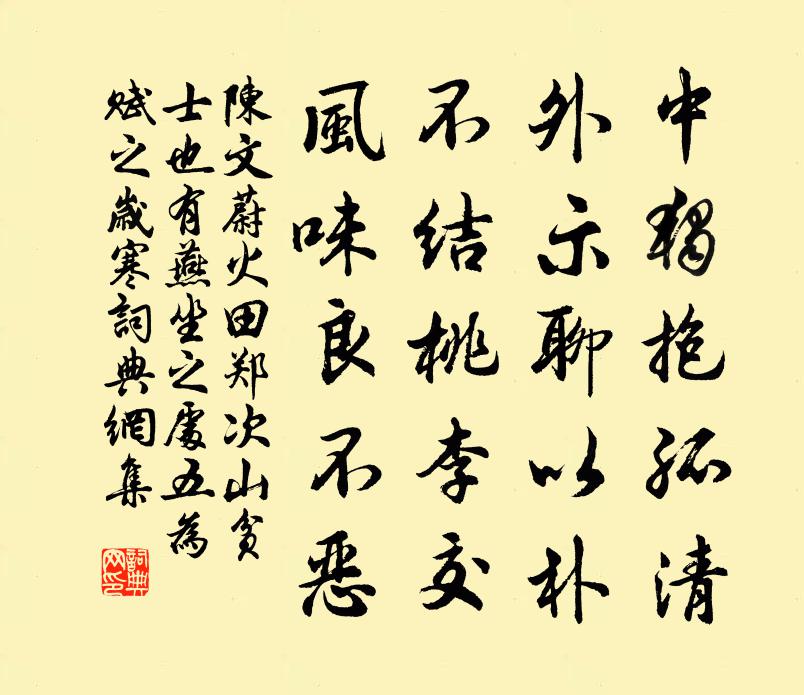 中獨抱孤清
外示聊以朴
不結桃李交
風味良不惡
陳文蔚火田郑次山貧
士也有燕坐之處五為
賦之歲寒詞典網集
詞典网印